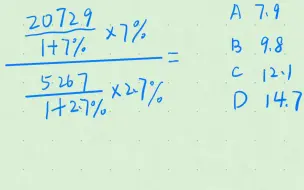 20729
1+7% ×7%
5267
1+2.7% ×2.7%
=
A 7.9
B 9.8
C 12.1
D 14.7